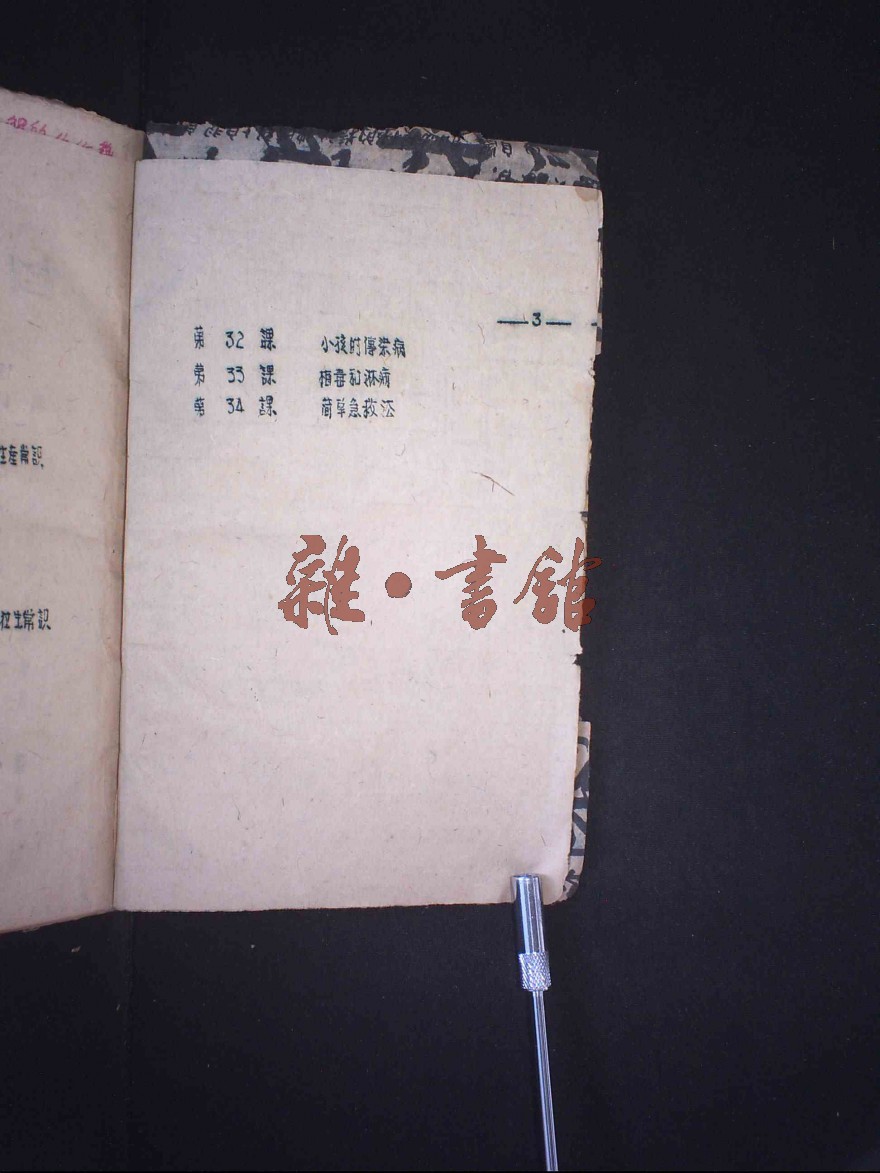 生産常識
拉生常识
—3—
第 32 課 小孩时傳染病
第 33 課 梅毒和淋病
第 34 課 简单急救法
雜·書館